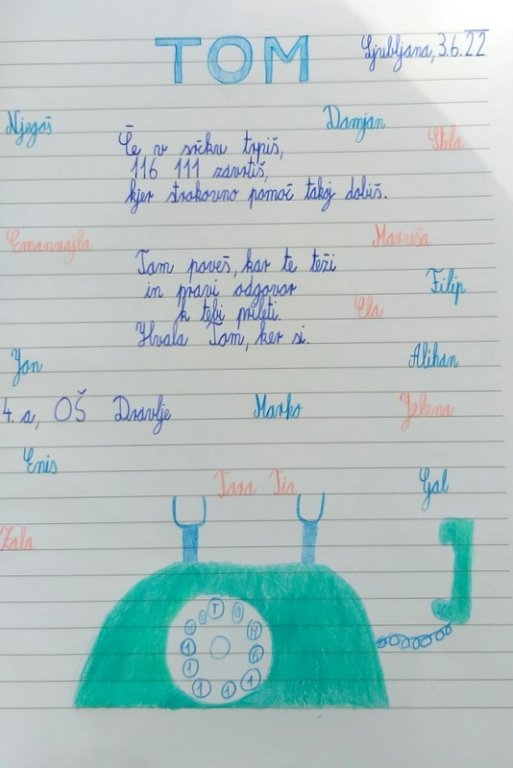 TOM
Ljubljana, 3.6.22
Njegoš
Damjan
Stela
Če v srčku trpiš,
116 111 zavrtiš,
kjer strokovno pomoč takoj dobiš.
Emanuajla
Maruša
Tam poveš, kar te teži
in pravi odgovor
k tebi prileti.
Hvala Tom, ker si.
Filip
Ela
Jan
Alihan
4. a, OŠ Dravlje
Marko
Jelena
Enis
Tara Tia
Gal
Zala
T
O
M
1
1
6
1
1
1